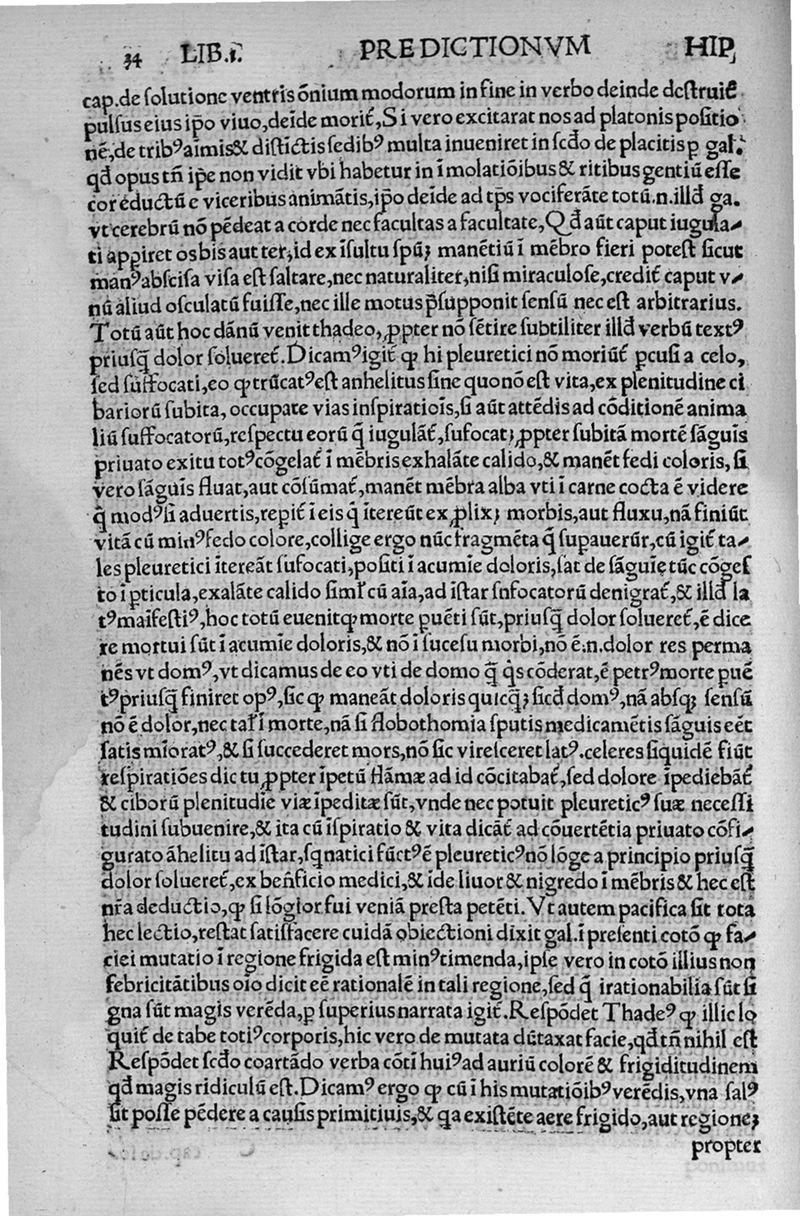 34 LIB.i. PREDICTIONVM HIP,
cap.de solutione ventris õnium modorum in fine in verbo deinde destruit̃
pulsus eius ip̃o viuo,deĩde morit̃,Si vero excitarat nos ad platonis positio
nẽ,de tribꝰ aĩmis & distĩctis sedibꝰ multa inueniret in scd̃o de placitis p̱ gal.
qd̃ opus tñ ip̃e non vidit vbi habetur in ĩmolatiõibus & ritibus gentiũ esse
cor éductũ e viceribus animãtis,ip̃o deĩde ad tp̃s vociferãte totũ.n.illd̃ ga.
vt cerebrũ nõ pẽdeat a corde nec facultas a facultate,Qd̃ aũt caput iugula-
ti app̱iret os bis aut ter,id ex ĩsultu spũꝝ manẽtiũ ĩ mẽbro fieri potest sicut
manꝰ abscisa visa est saltare,nec naturaliter,nisi miraculose,credit̃ caput v-
nũ aliud osculatũ fuisse,nec ille motus p̃supponit sensũ nec est arbitrarius.
Totũ aũt hoc dãnũ venit thadeo,ꝓpter nõ sẽtire subtiliter illd̃ verbũ textꝰ
priusq̃ dolor solueret̃.Dicamꝰ igit̃ ꝙ hi pleuretici nõ moriũt̃ p̱cusi a celo,
sed suffocati,eo ꝙ trũcatꝰ est anhelitus sine quo nõ est vita,ex plenitudine ci
bariorũ subita, occupate vias inspiratiois̃,si aũt attẽdis ad cõditionẽ anima
liũ suffocatorũ,respectu eorũ q̃ iugulãt̃,sufocatꝝ ꝓpter subitã mortẽ sãguis̃
priuato exitu totꝰ cõgelat̃ ĩ mẽbris exhalãte calido,& manẽt fedi coloris, si
vero sãguis̃ fluat,aut cõsũmat̃,manẽt mẽbra alba vti ĩ carne cocta ẽ videre
q̃ modꝰ si aduertis,rep̱it̃ ĩ eis q̃ ĩtereũt ex ꝓlixꝝ morbis,aut fluxu,nã finiũt
vitã cũ minꝰ fedo colore,collige ergo nũc fragmẽta q̃ sup̱auerũt,cũ igit̃ ta-
les pleuretici ĩtereãt sufocati,positi ĩ acumĩe doloris,sat de sãguĩe tũc cõges
to ĩ p̱ticula,exalãte calido siml̃r cũ aĩa,ad ĩstar snfocatorũ denigrat̃,& illd̃ la
tꝰ maĩfestiꝰ,hoc totũ euenit ꝙ morte p̱uẽti sũt,priusq̃ dolor solueret̃,ẽ dice
re mortui sũt ĩ acumĩe doloris,& nõ ĩ sucesu morbi,nõ ẽ.n.dolor res perma
nẽs vt domꝰ,vt dicamus de eo vti de domo q̃ q̇s cõderat,ẽ petrꝰ morte p̱uẽ
tꝰ priusq̃ finiret opꝰ,sic ꝙ maneãt doloris quicq̃ꝝ sicd̃ domꝰ,nã absqꝫ sensũ
nõ ẽ dolor,nec tal̃ ĩ morte,nã si flobothomia sputis medicamẽtis sãguis eẽt
satis mĩoratꝰ,& si succederet mors,nõ sic viresceret latꝰ.celeres siquidẽ fiũt
respiratiões dic tu ꝓpter ĩpetũ flãmæ ad id cõcitabãt̃,sed dolore ĩpediebãt̃
& ciborũ plenitudĩe viæ ĩpeditæ sũt,vnde nec potuit pleureticꝰ suæ necessi
tudini subuenire,& ita cũ ĩspiratio & vita dicãt̃ ad cõuertẽtia priuato cõfi-
gurato ãhelitu ad ĩstar,sq̱natici fũctꝰ ẽ pleureticꝰ nõ lõge a principio priusq̃
dolor solueret̃,ex beñficio medici,& ĩde liuor & nigredo ĩ mẽbris & hec est
nr̃a deductio,ꝙ si lõgior fui veniã presta petẽti.Vt autem pacifica sit tota
hec lectio,restat satisfacere cuidã obiectioni dixit gal.ĩ presenti cotõ ꝙ fa-
ciei mutatio ĩ regione frigida est minꝰ timenda,ipse vero in cotõ illius non
febricitãtibus oĩo dicit eẽ rationalẽ in tali regione,sed q̃ irationabilia sũt si
gna sũt magis verẽda,p̱ superius narrata igit̃.Respõdet Thadeꝰ ꝙ illic lo
quit̃ de tabe totiꝰ corporis,hic vero de mutata dũtaxat facie,qd̃ tñ nihil est
Respõdet scd̃o coartãdo verba cõti huiꝰ ad auriũ colorẽ & frigiditudinem
qd̃ magis ridiculũ est.Dicamꝰ ergo ꝙ cũ ĩ his mutatiõibꝰ verẽdis,vna salꝰ
sit posse pẽdere a causis primitiuis,& qa existẽte aere frigido,aut regioneꝫ
propter